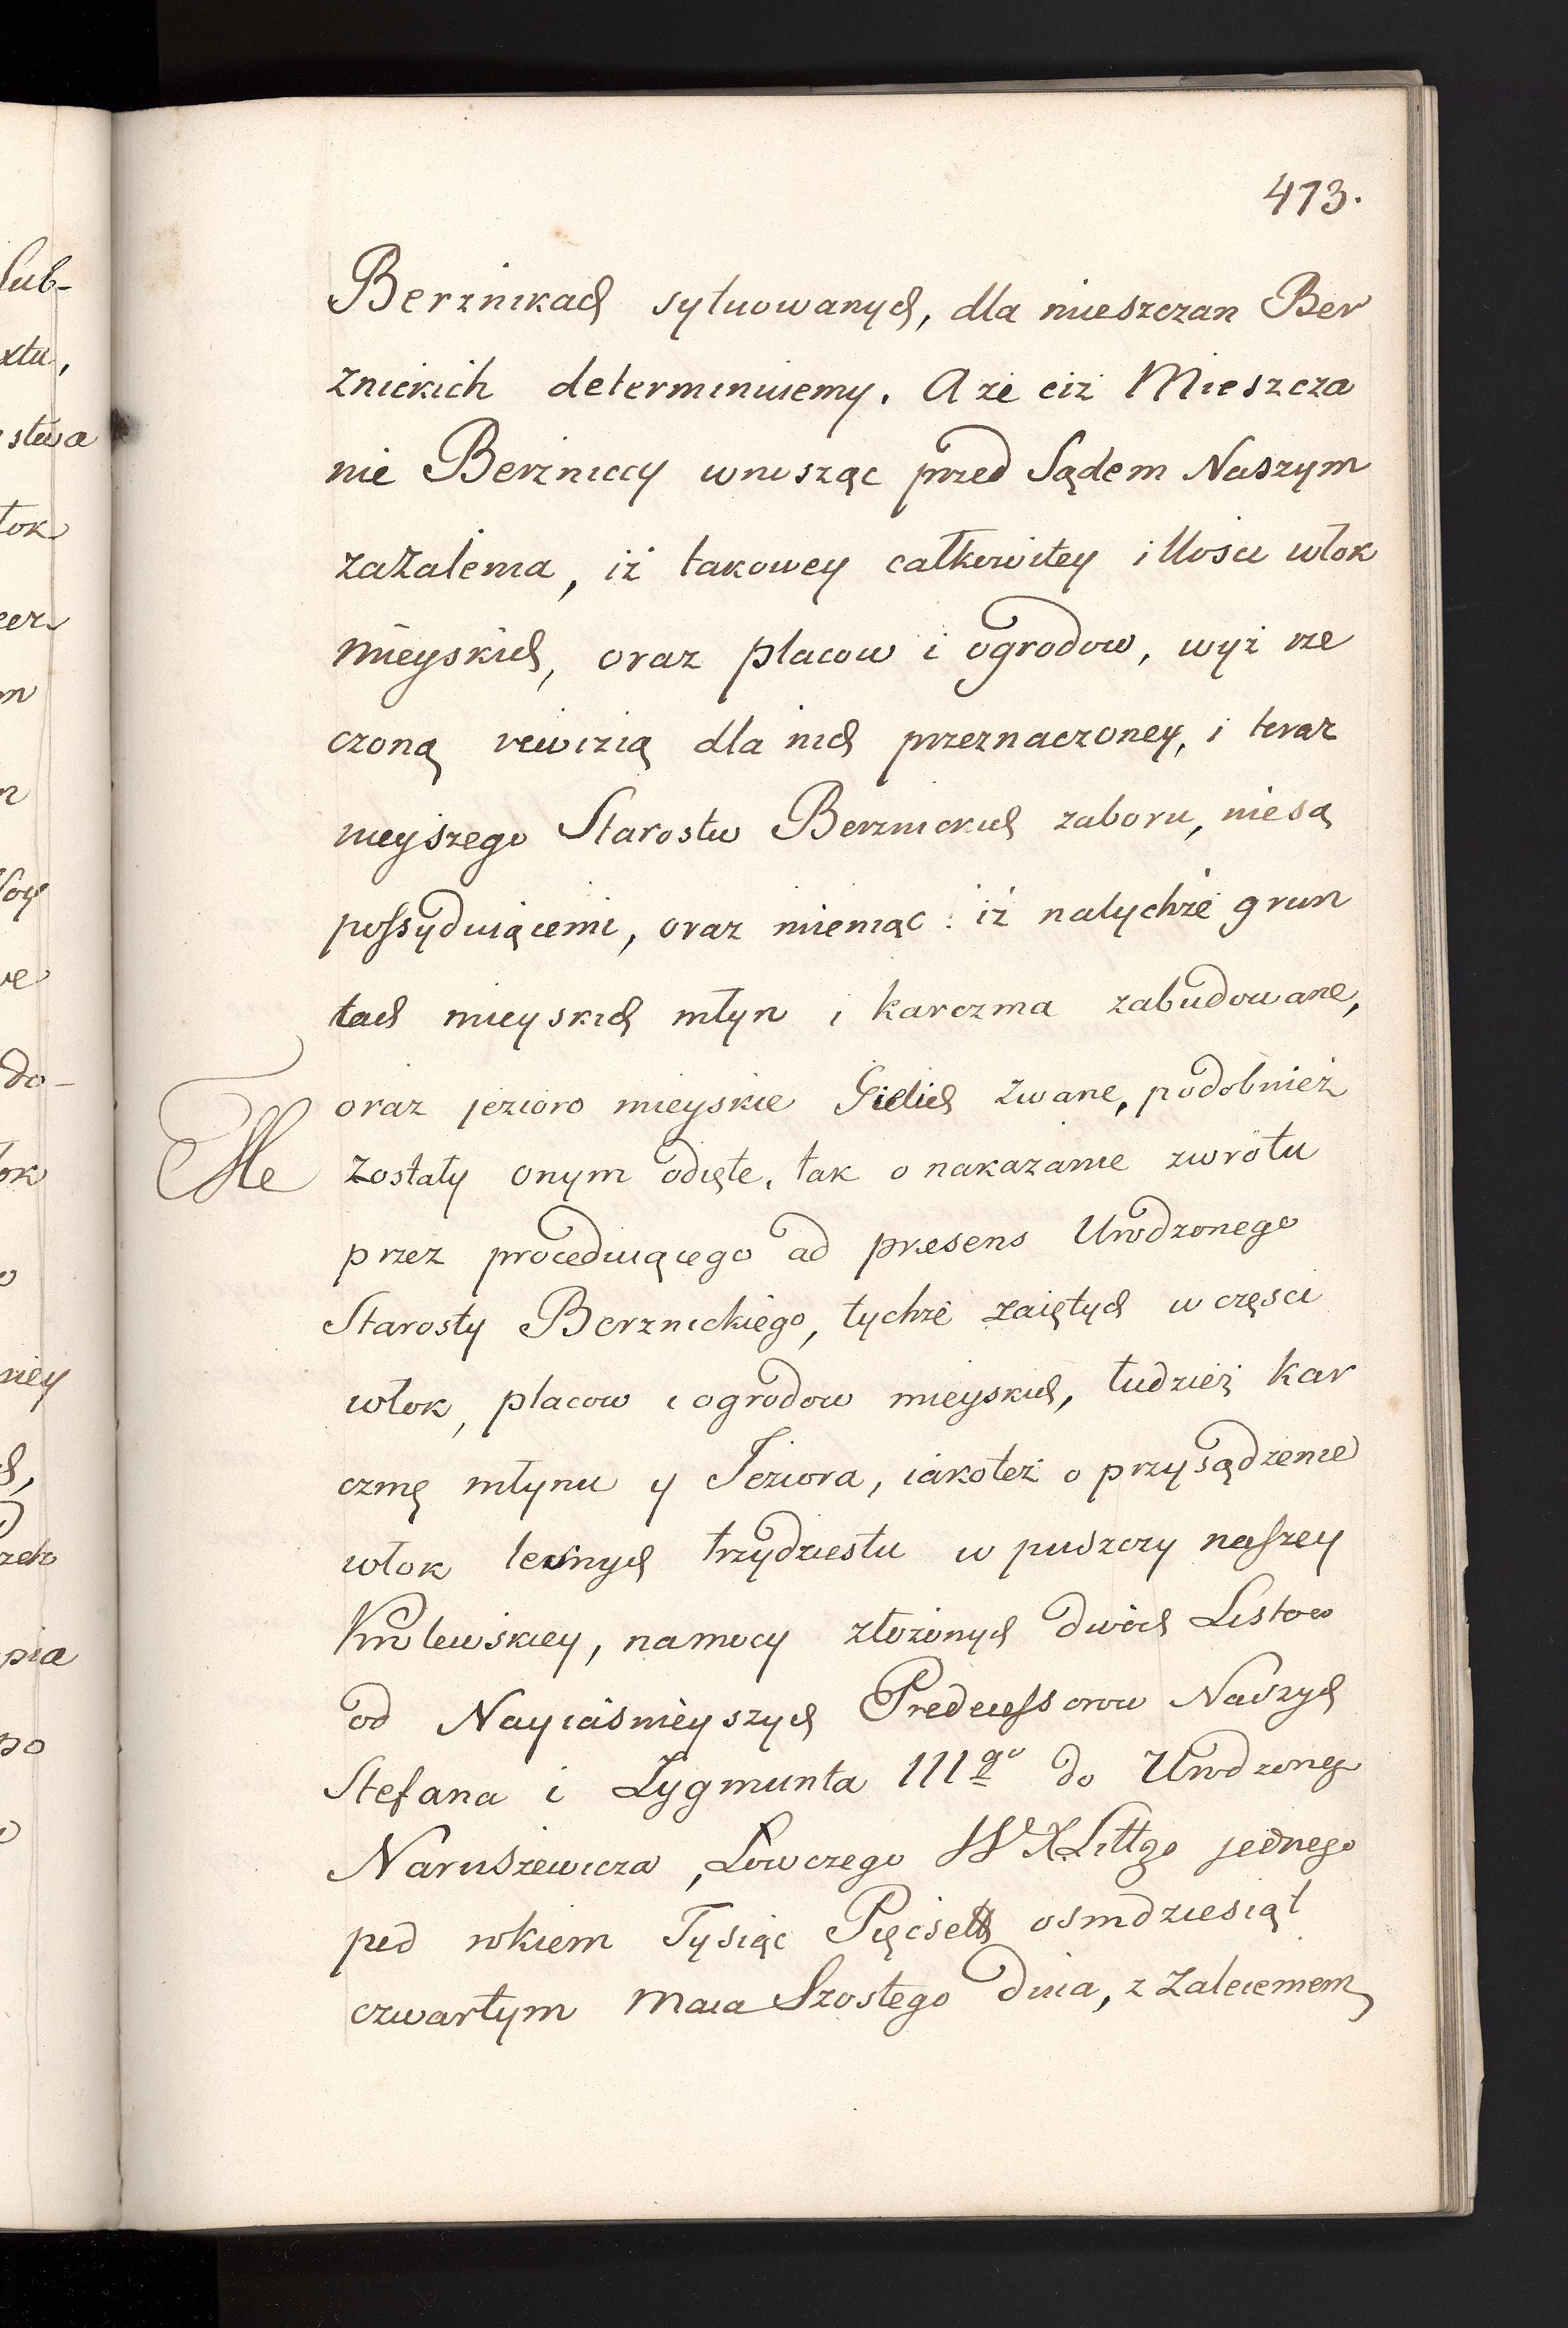 473.
Berznikach sytuowanych, dla mieszczan Ber
znickich determinuiemy. A że ciż Mieszcza
nie Berzniccy wnosząc przed Sądem Naszym
zażalenia, iż takowey całkowitey illości włok
mieyskich, oraz placow i ogrodow, wyż rze
czoną rewizią dla nich przeznaczoney, i teraz
nieyszego Starostw Berznickich zaboru, nie są
possyduiącemi, oraz mieniąc: iż na tychże grun
tach mieyskich młyn i karczma zabudowane,
oraz jezioro mieyskie Gielich zwane, podobnież
zostały onym odięte, tak o nakazanie zwrotu
przez proceduiącego ad presens Urodzonego
Starosty Berznickiego, tychże zaiętych w części
włok, placow i ogrodow mieyskich, tudzież kar
czmę młynu y Jeziora, iakoteż o przysądzenie
włok leśnych trzydziestu w puszczy naszey
Krolewskiey, na mocy złożonych dwóch Listow
od Nayiaśnieyszych Predecessorow Naszych
Stefana i Zygmunta III go do Urodzoneg
Naruszewicza, Łowczego W X Littgo jednego
pod rokiem Tysiąc Pięćset osmdziesiąt
czwartym Maia Szostego dnia, z zaleceniem
Sub-
xtu,
stwa
łok
m
n
ve
do-
łok
niey
pia
po